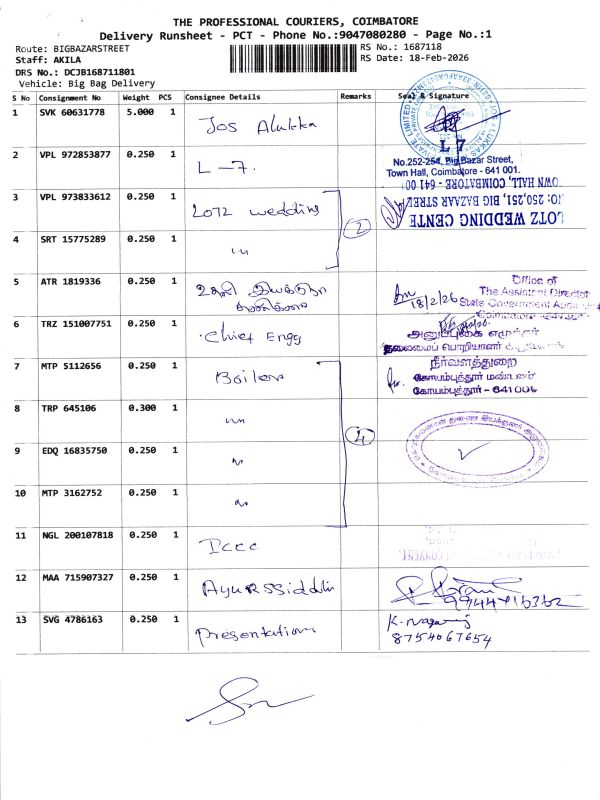 THE PROFESSIONAL COURIERS, COIMBATORE
Delivery Runsheet - PCT - Phone No.:9047080280 - Page No.:1
Route: BIGBAZARSTREET
RS No.: 1687118
Staff: AKILA
RS Date: 18-Feb-2026
DRS No.: DCJB168711801
Vehicle: Big Bag Delivery
S No Consignment No Weight PCS Consignee Details Remarks Seal & Signature
1 SVK 60631778 5.000 1 Jos Alukka
L 7
No.252-254, Big Bazar Street,
Town Hall, Coimbatore - 641 001.
2 VPL 972853877 0.250 1 L-7.
3 VPL 973833612 0.250 1 Lotz wedding
2
LOTZ WEDDING CENTE
NO: 250,251, BIG BAZAAR STREE
OWN HALL, COIMBATORE - 641 00
4 SRT 15775289 0.250 1 "
5 ATR 1819336 0.250 1 உதவி இயக்குநர்
18/2/26
Office of
The Assistant Director
State Government
6 TRZ 151007751 0.250 1 Chief Engg
தலைமைப் பொறியாளர்
7 MTP 5112656 0.250 1 Boiler
நீர்வளத்துறை
கோயம்புத்தூர் மண்டலம்
கோயம்புத்தூர் - 641 001
8 TRP 645106 0.300 1 "
4
9 EDQ 16835750 0.250 1 "
10 MTP 3162752 0.250 1 "
11 NGL 200107818 0.250 1 Iccc
12 MAA 715907327 0.250 1 Ayurssiddin
13 SVG 4786163 0.250 1 Presentation
K. nagaraj
8754067654